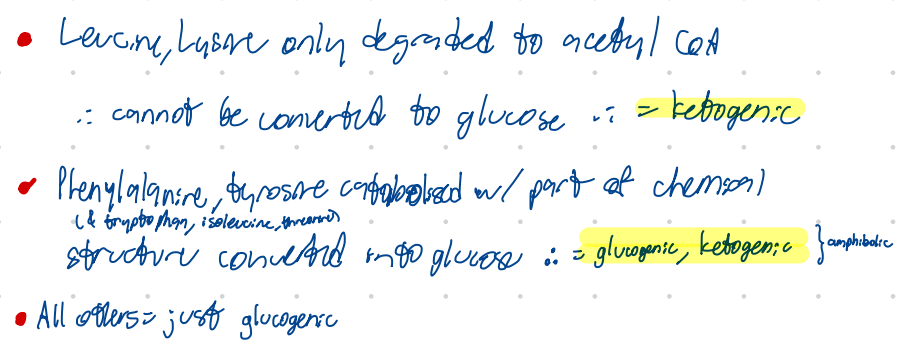 • Leucine, Lysine only degraded to acetyl CoA
∴ cannot be converted to glucose ∴ = ketogenic
• Phenylalanine, tyrosine catabolised w/ part of chemical
(& tryptophan, isoleucine, threonine)
structure converted into glucose ∴ = glucogenic, ketogenic } amphibolic
• All others = just glucogenic